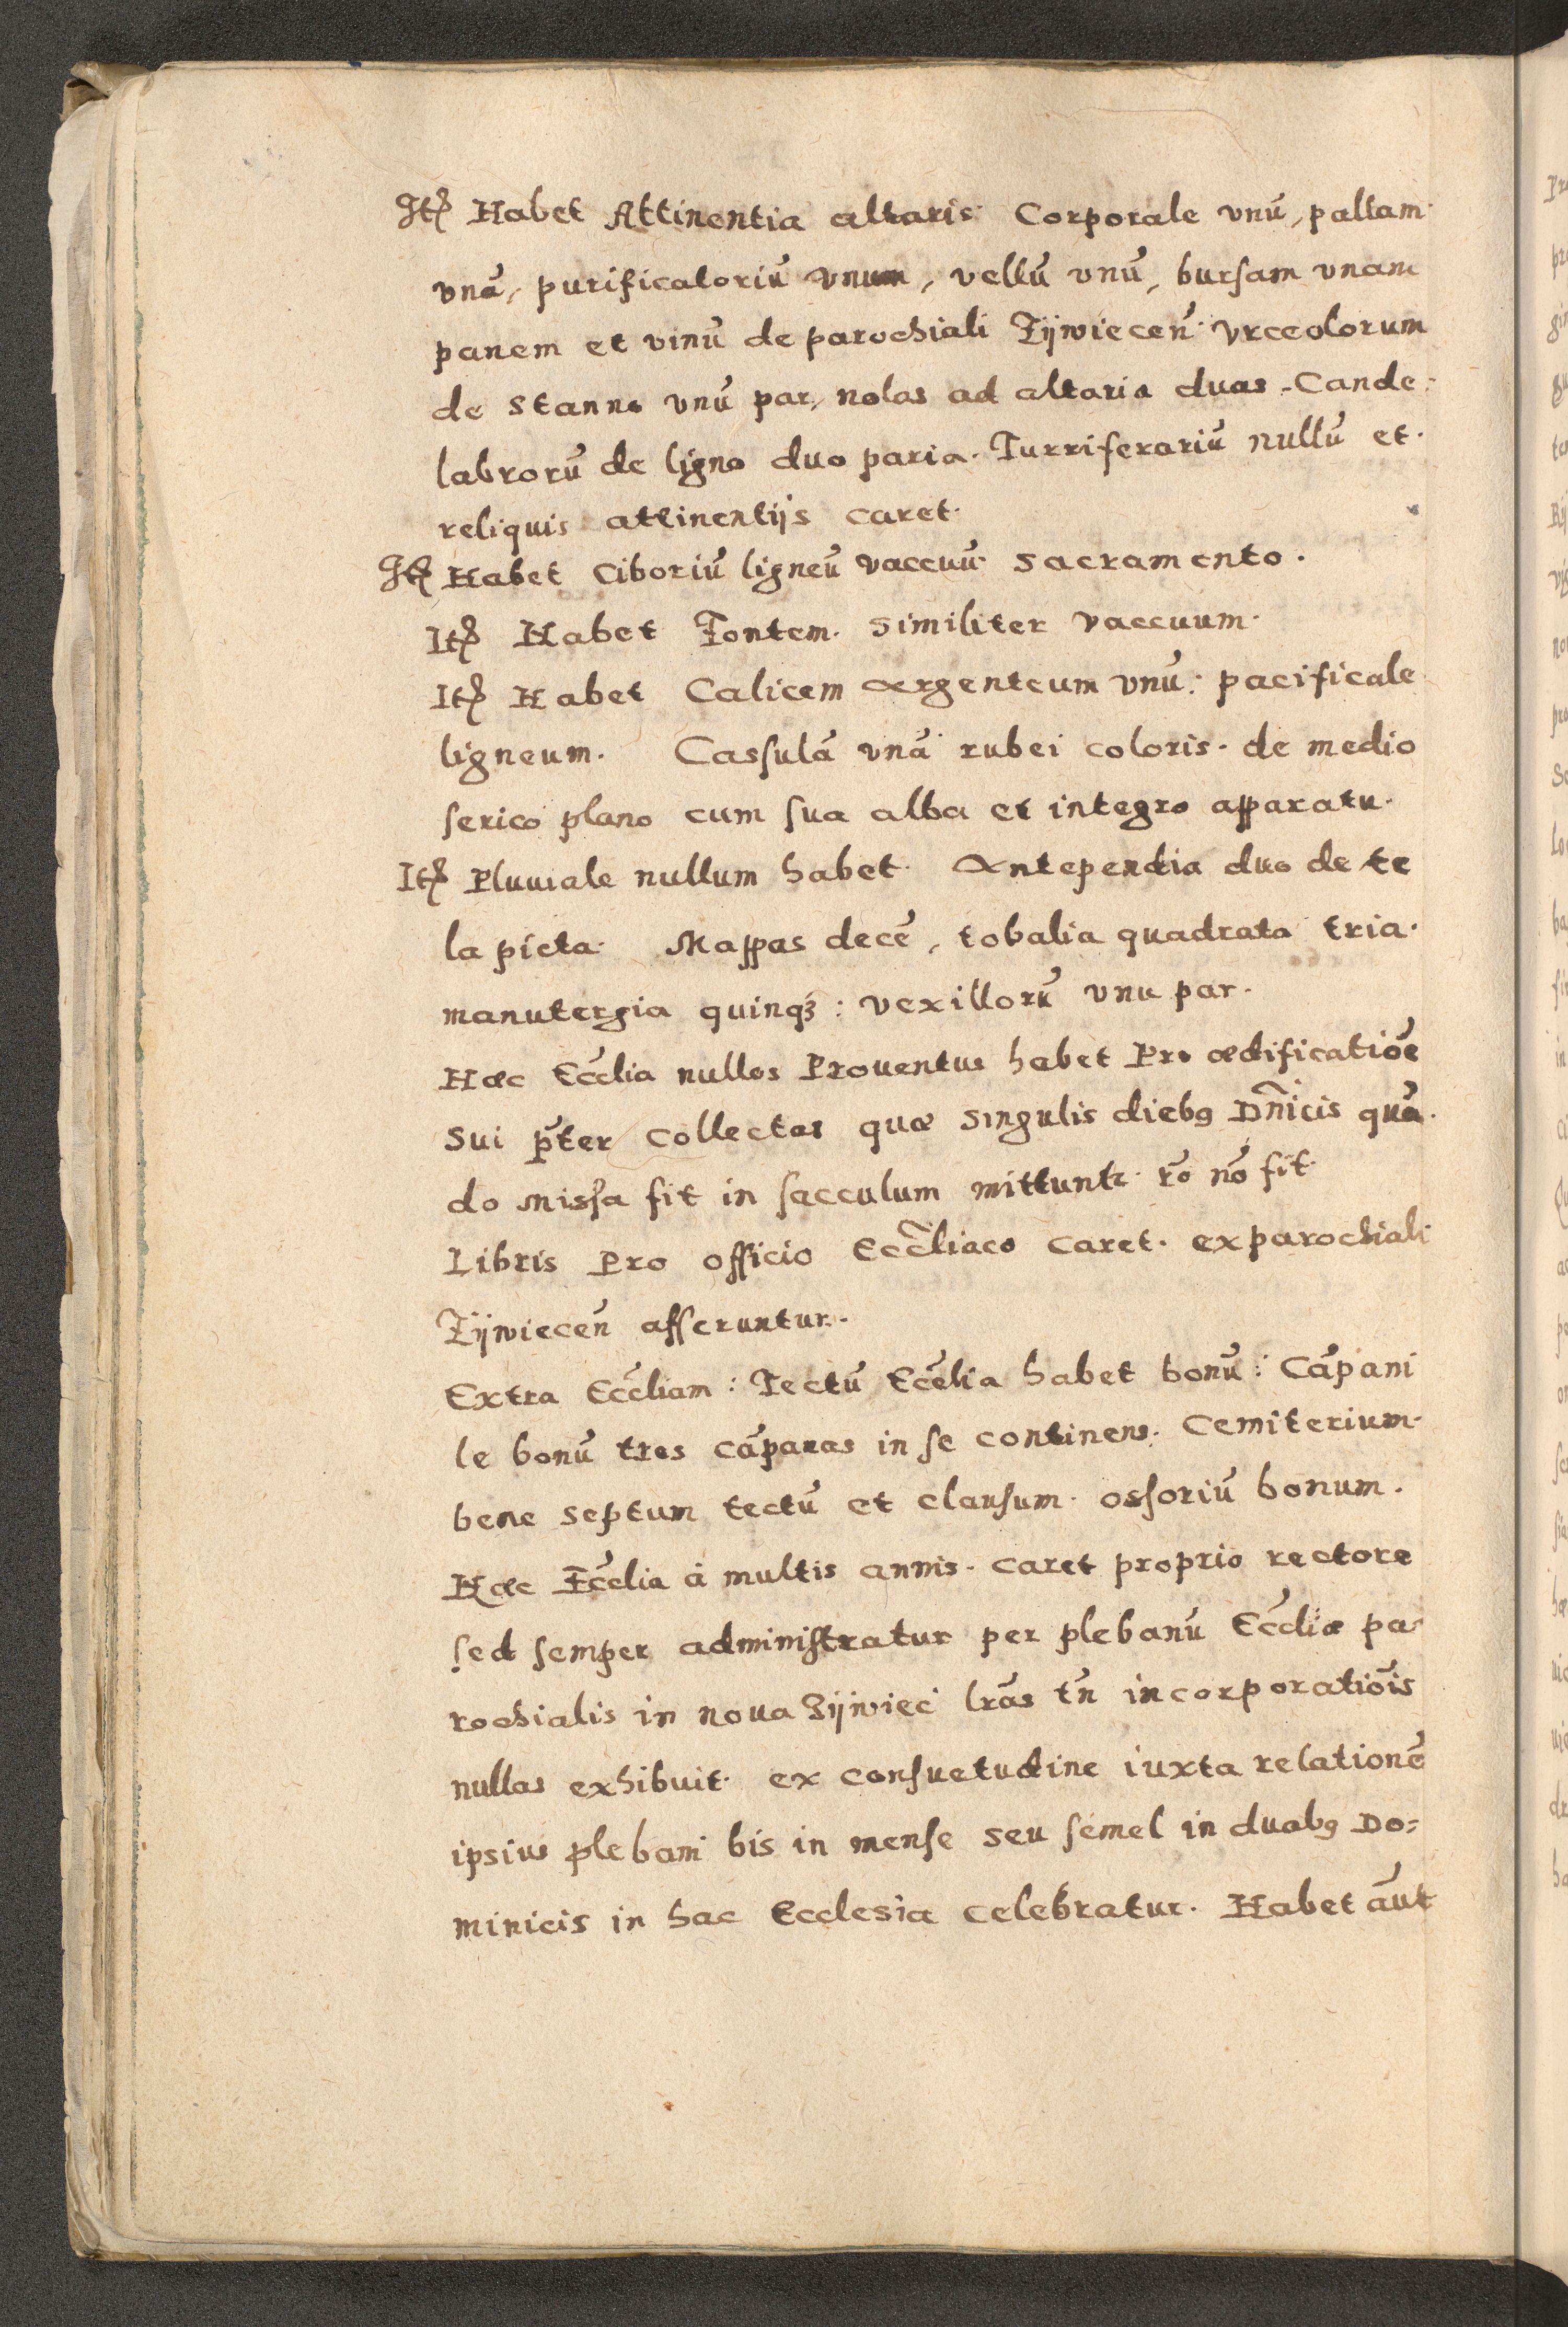 Itē Habet Attinentia altaris. Corporale vnū, pallam
vnā, purificatoriū vnum, vellū vnū, bursam vnam
panem et vinū de parochiali Zÿwieceñ. Vrceolorum
de stanno vnū par, nolas ad altaria duas. Cande=
labrorū de ligno duo paria. Turriferariū nullū et.
reliquis attinentijs caret.
Itē Habet Ciboriū ligneū vaccuū sacramento.
Itē Habet Fontem. similiter vaccuum.
Itē Habet Calicem argenteum vnū: pacificale
ligneum. Cassulā vnā rubei coloris. de medio
serico plano cum sua alba et integro apparatu.
Itē Pluuiale nullum habet. Antependia duo de te
la picta. Mappas decē, tobalia quadrata tria.
manutergia quinqȝ: vexillorū vnu par.
Haec Eccłia nullos Prouentus habet Pro aedificatiōe
sui p̄ter collectas quae singulis diebꝰ Dn̄icis quā
do missa fit in sacculum mittuntr. rō nō fit.
Libris Pro officio Eccłiaco caret. ex parochiali
Zÿwieceñ afferuntur.
Extra Eccłiam: Tectū Eccłia habet bonū: Cāpani
le bonū tres cāpanas in se continens. Cemiterium.
bene septum tectū et clausum. ossoriū bonum.
Haec Eccłia à multis annis. caret proprio rectore
sed semper administratur per plebanū Eccłiae pa=
rochialis in noua Zÿwiec lrās tn̄ incorporatiōis
nullas exhibuit. ex consuetudine iuxta relationē
ipsius plebani bis in mense seu semel in duabꝰ Do=
minicis in hac Ecclesia celebratur. Habet āut